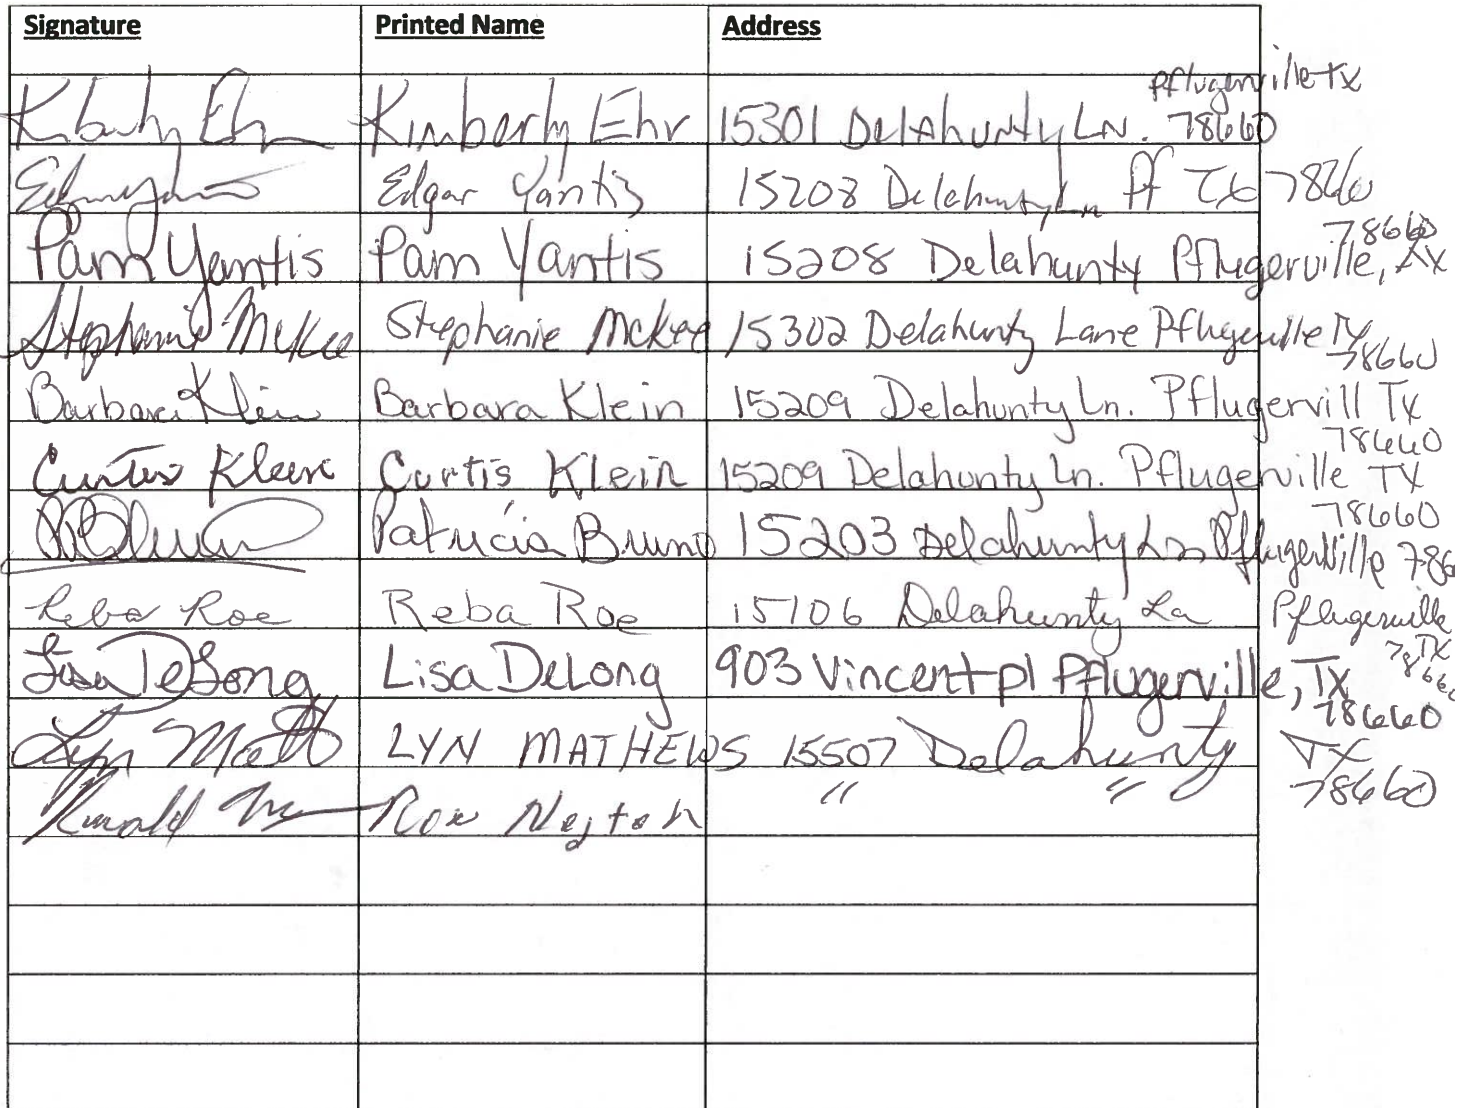 Signature Printed Name Address
Pflugerville Tx
Kimberly Ehr 15301 Delahunty LN. 78660
Edgar Yantis 15208 Delahunty Ln Pf TX 78660
78660
Pam Yantis Pam Yantis 15208 Delahunty Pflugerville, Tx
Stephanie McKee Stephanie McKee 15302 Delahunty Lane Pflugerville TX
78660
Barbara Klein Barbara Klein 15209 Delahunty Ln. Pflugervill Tx
78660
Curtis Klein Curtis Klein 15209 Delahunty Ln. Pflugerville TX
78660
Patricia Bruno 15203 Delahunty Ln Pflugerville 786
Reba Roe Reba Roe 15106 Delahunty La Pflugerville
TX
7866
Lisa DeLong Lisa DeLong 903 Vincent pl Pflugerville, Tx
78660
Lyn Matt LYN MATHEWS 15507 Delahunty TX
78660
Ronald Ron " "